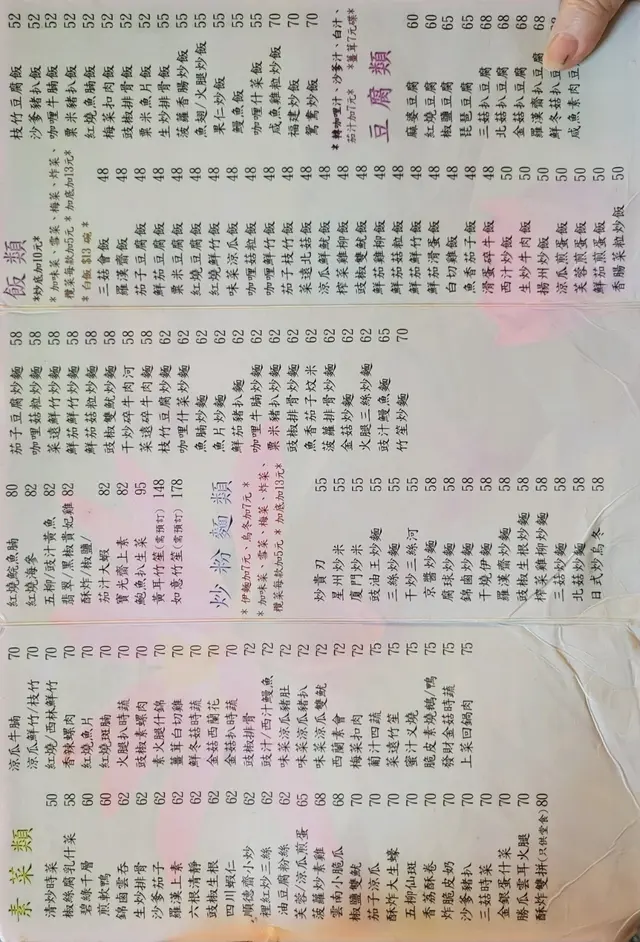 素菜類
清炒時菜 50
椒絲腐乳什菜 58
碧綠千層 60
煎軟鴨 60
錦鹵雲吞 62
生炒排骨 62
沙爹茄子 62
羅漢上素 62
六根清靜 62
豉椒生根 62
四川蝦仁 62
順德齋小炒 62
裡紅炒三絲 62
油豆腐粉絲 62
芙蓉/涼瓜煎蛋 65
菠蘿炒素雞 68
雲南小脆瓜 68
椒鹽雙魷 70
茄子涼瓜 70
酥炸大生蠔 70
五柳仙斑 70
香荔酥卷 70
炸脆皮奶 70
沙爹豬扒 70
三菇時菜 70
金銀蛋什菜 70
勝瓜雲耳火腿 70
酥炸雙拼(只供堂食) 80
涼瓜牛腩 70
涼瓜鮮竹/枝竹 70
紅燒/西林鮮竹 70
香辣螺肉 70
紅燒魚片 70
紅燒斑腩 70
火腿扒時蔬 70
豉椒素螺肉 70
素火腿什錦 70
薑茸白切雞 70
鮮冬菇時蔬 70
金菇西蘭花 70
金菇扒時蔬 70
豉椒排骨 72
豉汁/西汁鰻魚 72
味菜涼瓜豬肚 72
味菜涼瓜豬扒 72
味菜涼瓜雙魷 72
西蘭素會 72
梅菜扣肉 72
蔔汁四蔬 75
菜遠竹笙 75
蜜汁叉燒 75
脆皮素燒鵝/鴨 75
發財金菇時蔬 75
上菜回鍋肉 75
紅燒鮑魚腩 80
紅燒海參 82
五柳/豉汁黃魚 82
翡翠/黑椒貴妃雞 82
酥炸/椒鹽/
茄汁大蝦 82
寶光齋上素 82
鮑魚扒生菜 95
黃耳竹笙(需預訂) 148
如意竹笙(需預訂) 178
炒粉麵類
* 伊麵加7元、烏冬加7元 *
* 加味菜、雪菜、梅菜、炸菜、
欖菜每款加5元 * 加底加13元*
炒貴刁 55
星州炒米 55
廈門炒米 55
豉油王炒麵 55
三絲炒麵 55
干炒三絲河 55
京醬炒麵 58
腐球炒麵 58
錦鹵炒麵 58
干燒伊麵 58
羅漢齋炒麵 58
豉椒生根炒麵 58
榨菜雞柳炒麵 58
三菇炒麵 58
北菇炒麵 58
日式炒烏冬 58
茄子豆腐炒麵 58
咖喱菇粒炒麵 58
菜遠鮮竹炒麵 58
鮮茄鮮竹炒麵 58
鮮茄菇粒炒麵 58
豉椒雙魷炒麵 58
干炒碎牛肉河 58
菜遠碎牛肉麵 58
枝竹豆腐炒麵 62
咖喱什菜炒麵 62
魚腩炒麵 62
魚片炒麵 62
鮮茄豬扒麵 62
咖喱牛腩炒麵 62
粟米豬扒炒麵 62
豉椒排骨炒麵 62
魚香茄子炆米 62
菠蘿排骨炒麵 62
金菇炒麵 62
火腿三絲炒麵 62
豉汁鰻魚麵 65
竹笙炒麵 70
飯類
*炒底加10元*
* 加味菜、雪菜、梅菜、炸菜、
欖菜每款加5元 * 加底加13元*
* 白飯 $13 碗 *
三菇會飯 48
羅漢齋飯 48
茄子豆腐飯 48
鮮茄豆腐飯 48
粟米豆腐飯 48
紅燒豆腐飯 48
紅燒鮮竹飯 48
味菜涼瓜飯 48
咖喱菇粒飯 48
咖喱鮮竹飯 48
茄子枝竹飯 48
菜遠北菇飯 48
涼瓜鮮魷飯 48
榨菜雞柳飯 48
豉椒雙魷飯 48
鮮茄雞柳飯 48
鮮茄菇粒飯 48
鮮茄鮮竹飯 48
鮮茄滑蛋飯 48
白切雞飯 48
魚香茄子飯 48
滑蛋碎牛飯 48
西汁炒飯 50
生炒牛肉飯 50
揚州炒飯 50
涼瓜煎蛋飯 50
芙蓉煎蛋飯 50
鮮茄煎蛋飯 50
香腸菜粒炒飯 50
枝竹豆腐飯 52
沙爹豬扒飯 52
咖喱牛腩飯 52
粟米豬扒飯 52
紅燒魚腩飯 52
梅菜扣肉飯 52
豉椒排骨飯 52
粟米魚片飯 52
生炒排骨飯 55
菠蘿香腸炒飯 55
魚翅/火腿炒飯 55
果仁炒飯 55
鰻魚飯 55
咖喱什菜飯 55
咸魚雞粒炒飯 70
福建炒飯 70
鴛鴦炒飯 70
*轉咖喱汁、沙爹汁、白汁、
茄汁加7元* *薑茸7元碟*
豆腐類
麻婆豆腐 60
紅燒豆腐 60
椒鹽豆腐 65
琵琶豆腐 65
三菇扒豆腐 68
北菇扒豆腐 68
金菇扒豆腐 68
羅漢齋扒豆腐 68
鮮冬菇扒豆
咸魚素肉豆